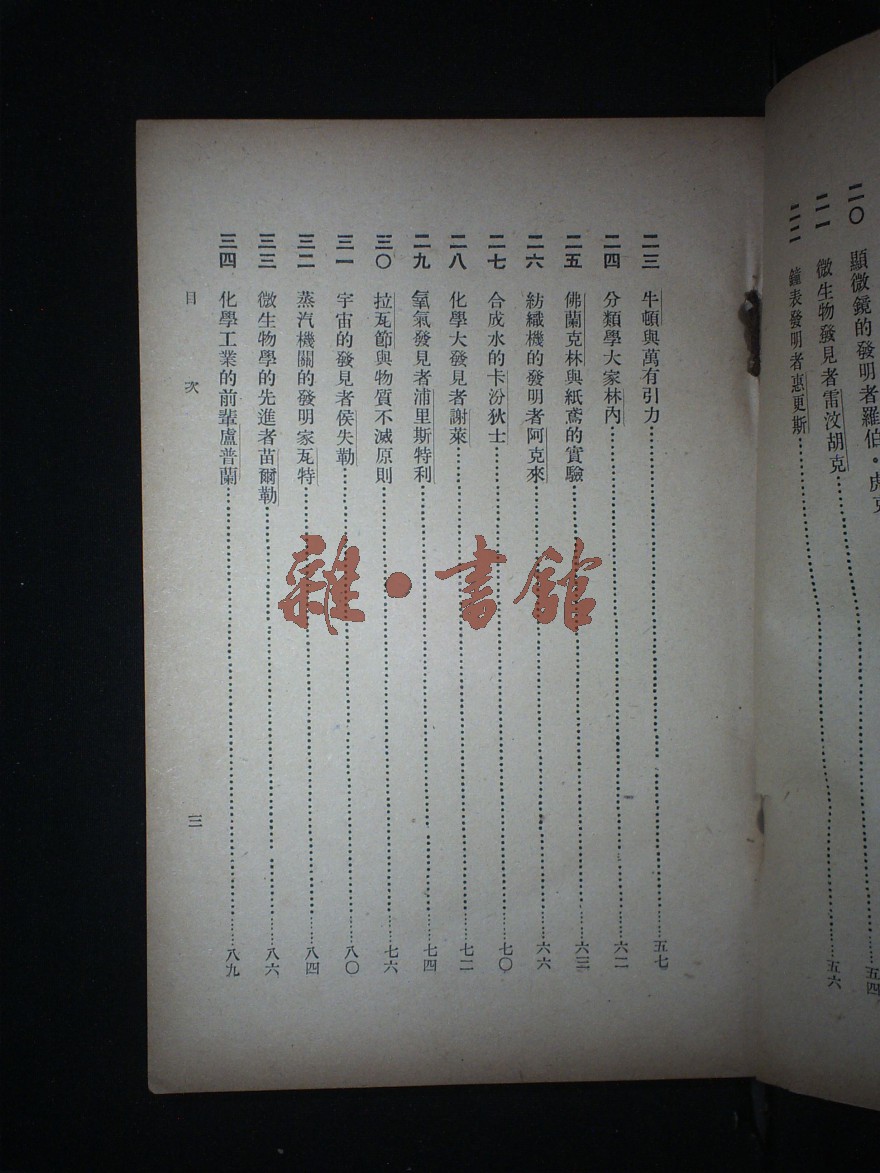 二〇 顯微鏡的發明者羅伯·虎克……五四
二一 微生物發見者雷汶胡克……五六
二二 鐘表發明者惠更斯……
二三 牛頓與萬有引力……五七
二四 分類學大家林內……六二
二五 佛蘭克林與紙鳶的實驗……六三
二六 紡織機的發明者阿克來……六六
二七 合成水的卡汾狄士……七〇
二八 化學大發見者謝萊……七二
二九 氧氣發見者浦里斯特利……七四
三〇 拉瓦節與物質不滅原則……七六
三一 宇宙的發見者侯失勒……八〇
三二 蒸汽機關的發明家瓦特……八四
三三 微生物學的先進者苗爾勒……八六
三四 化學工業的前輩盧普蘭……八九
目次 三
雜·書館